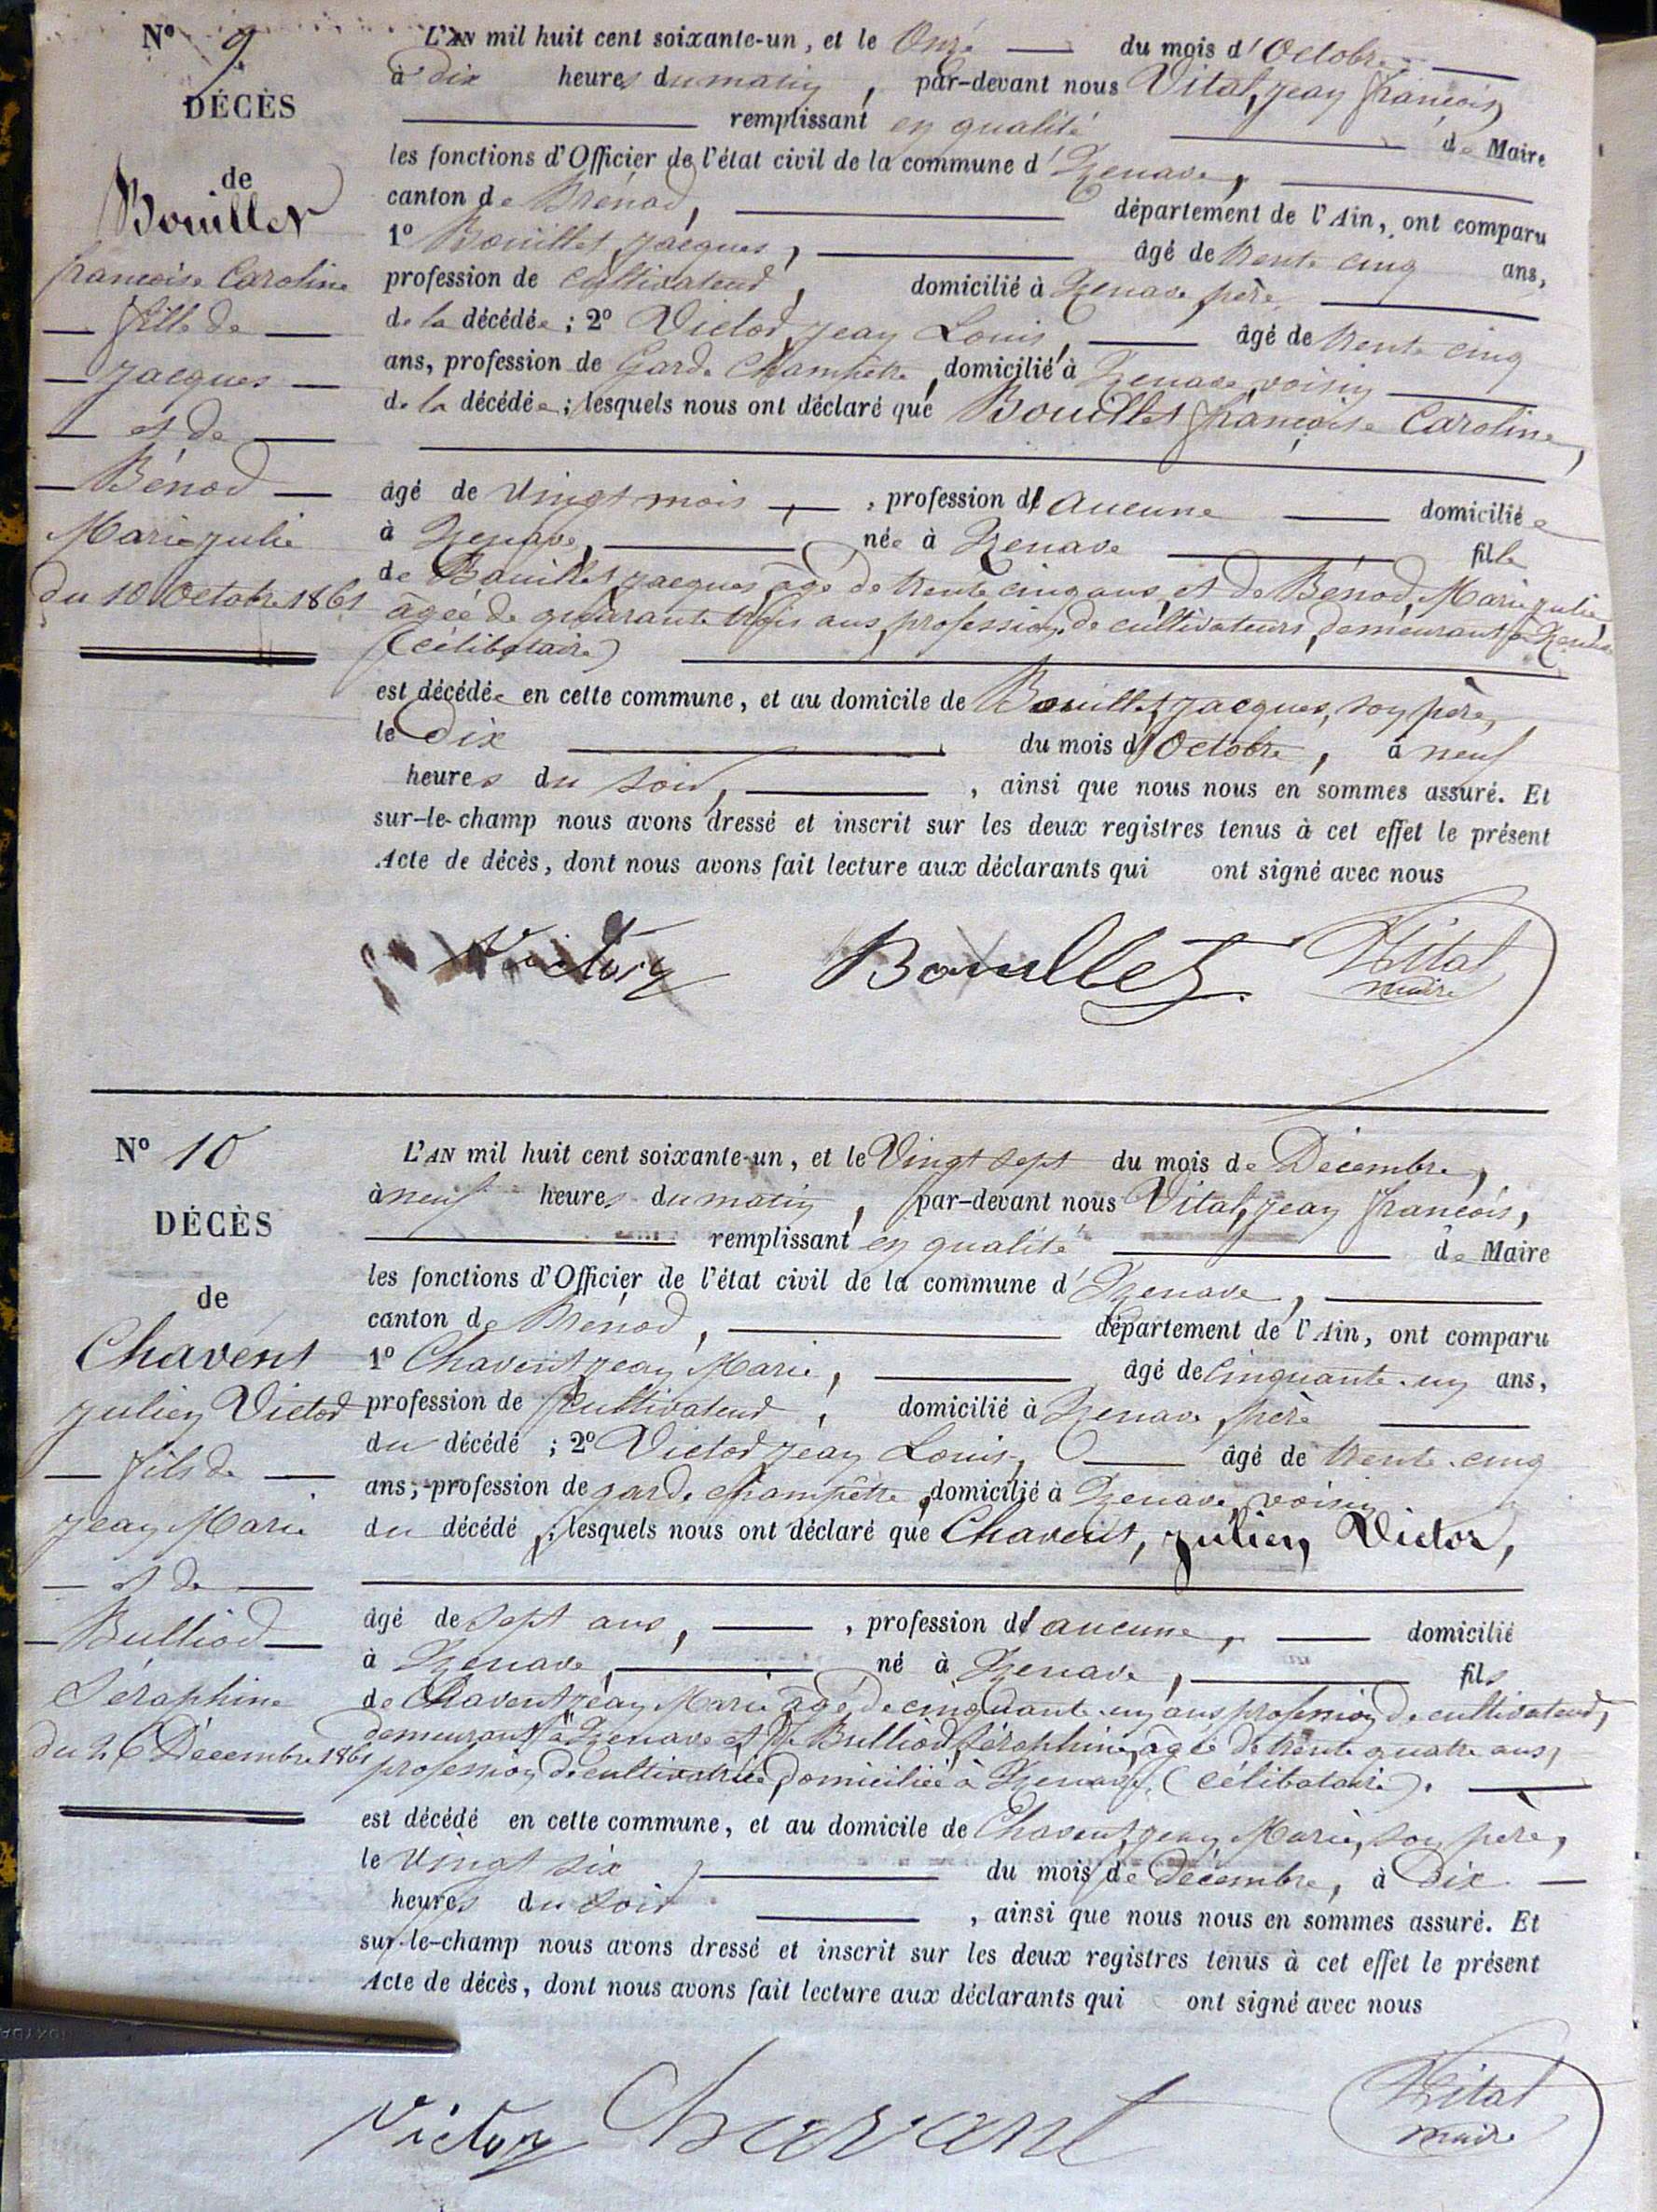 N° 9
DÉCÈS
de
Bouillet
françoise Caroline
fille de
Jacques
et de
Bénod
Marie Julie
du 10 Octobre 1861
L'AN mil huit cent soixante-un, et le Onze du mois d'Octobre
à dix heures du matin, par-devant nous Vital, Jean François
remplissant en qualité de Maire
les fonctions d'Officier de l'état civil de la commune d'Izenave,
canton de Brénod, département de l'Ain, ont comparu
1° Bouillet Jacques, âgé de trente cinq ans,
profession de cultivateur, domicilié à Izenave, père
de la décédée; 2° Victor, Jean Louis, âgé de trente cinq
ans, profession de Garde Champêtre, domicilié à Izenave, voisin
de la décédée; lesquels nous ont déclaré que Bouillet françoise Caroline,
âgé de vingt mois, profession d'aucune domiciliée
à Izenave, née à Izenave fille
de Bouillet, Jacques, âgé de trente cinq ans, et de Bénod, Marie Julie,
âgée de quarante trois ans, profession de cultivateurs, demeurant à Izenave
(célibataire)
est décédée en cette commune, et au domicile de Bouillet, Jacques, son père,
le dix du mois d'Octobre, à neuf
heures du soir, ainsi que nous nous en sommes assuré. Et
sur-le-champ nous avons dressé et inscrit sur les deux registres tenus à cet effet le présent
Acte de décès, dont nous avons fait lecture aux déclarants qui ont signé avec nous
Victor Bouillet Vital
maire
N° 10
DÉCÈS
de
Chavent
Julien Victor
fils de
Jean Marie
et de
Bulliod
Séraphine
du 26 Décembre 1861
L'AN mil huit cent soixante-un, et le Vingt sept du mois de Décembre,
à neuf heures du matin, par-devant nous Vital, Jean François,
remplissant en qualité de Maire
les fonctions d'Officier de l'état civil de la commune d'Izenave,
canton de Brénod, département de l'Ain, ont comparu
1° Chavent Jean Marie, âgé de cinquante-un ans,
profession de cultivateur, domicilié à Izenave, père
du décédé; 2° Victor, Jean Louis, âgé de trente-cinq
ans, profession de garde champêtre, domicilié à Izenave, voisin
du décédé; lesquels nous ont déclaré que Chavent, Julien, Victor,
âgé de sept ans, profession d'aucune, domicilié
à Izenave, né à Izenave, fils
de Chavent, Jean Marie âgé de cinquante-un ans profession de cultivateur,
demeurant à Izenave et de Bulliod, Séraphine, âgée de trente quatre ans,
profession de cultivatrice, domiciliée à Izenave, (célibataire).
est décédé en cette commune, et au domicile de Chavent, Jean Marie, son père,
le vingt six du mois de Décembre, à Dix
heures du soir, ainsi que nous nous en sommes assuré. Et
sur-le-champ nous avons dressé et inscrit sur les deux registres tenus à cet effet le présent
Acte de décès, dont nous avons fait lecture aux déclarants qui ont signé avec nous
Victor Chavent Vital
maire